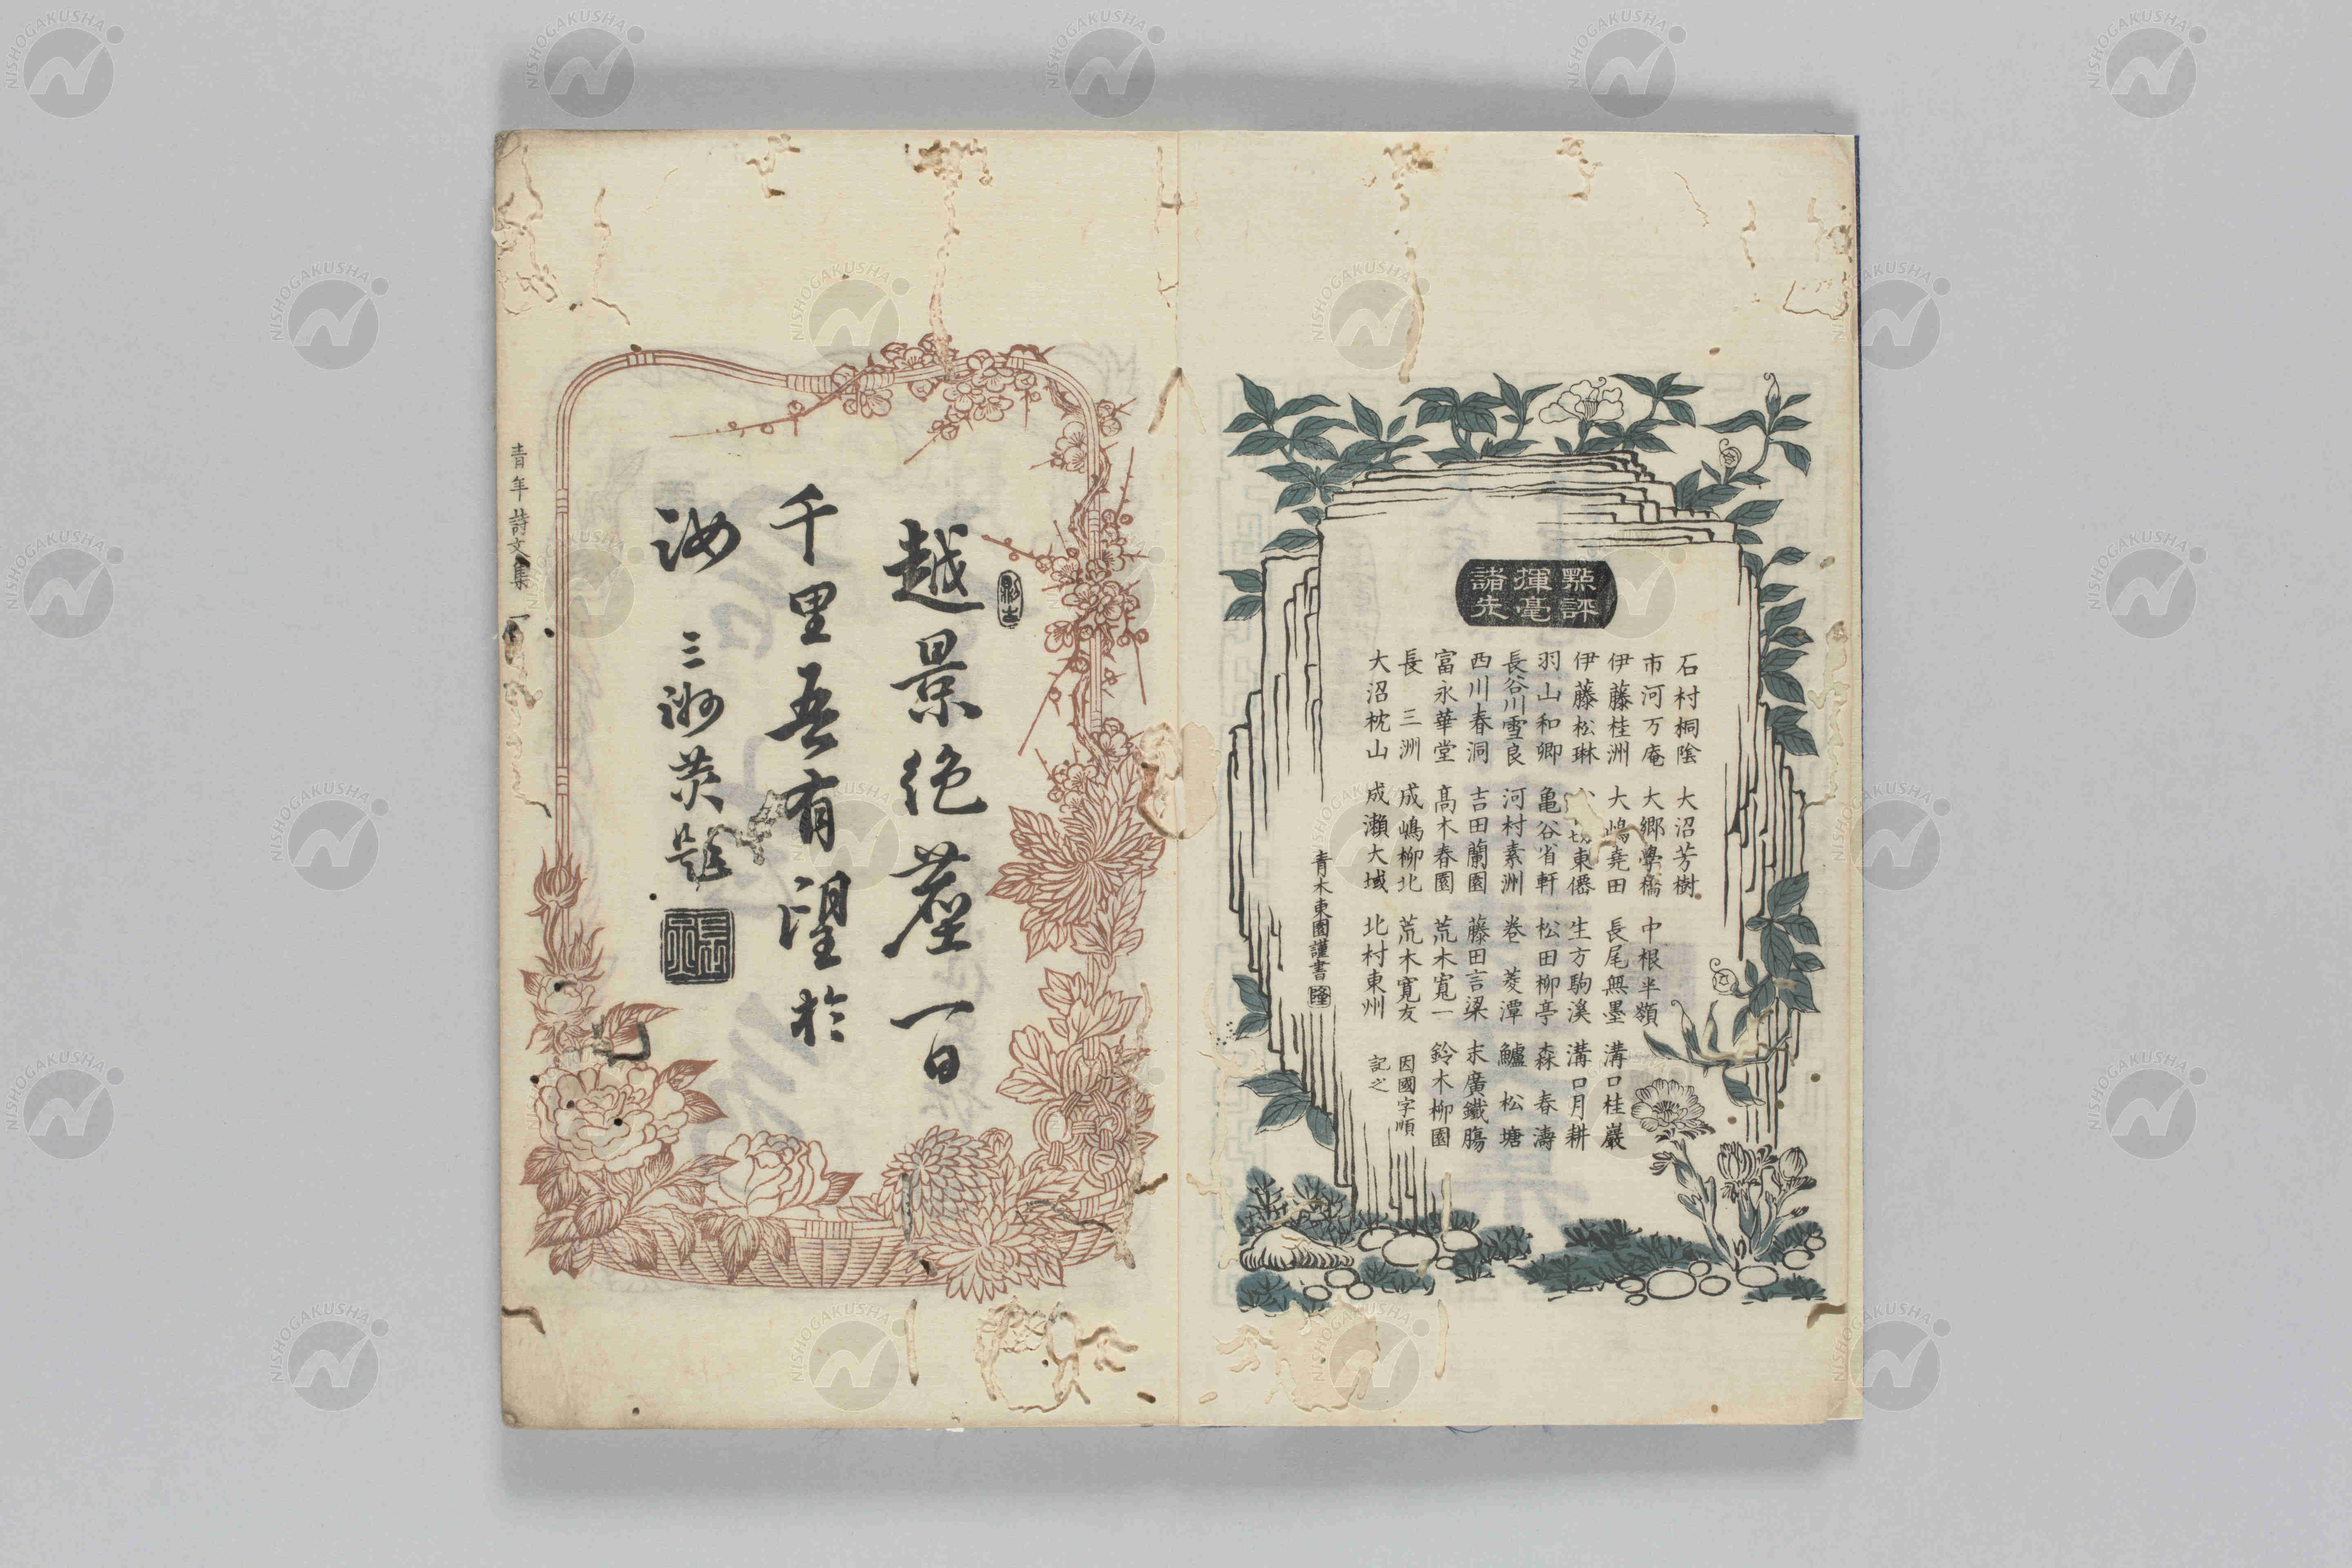 點評
揮毫
諸先
石村桐陰 大沼芳樹
市河万庵 大郷學橋 中根半嶺
伊藤桂洲 大嶋堯田 長尾無墨 溝口桂巖
伊藤松琳 切東僊 生方駒溪 溝口月耕
羽山和卿 亀谷省軒 松田柳亭 森春濤
長谷川雪良 河村素洲 巻菱潭 鱸松塘
西川春洞 吉田蘭園 藤田言梁 末廣鐵膓
富永華堂 髙木春園 荒木寛一 鈴木柳園
長三洲 成嶋柳北 荒木寛友 因國字順
大沼枕山 成瀬大域 北村東州 記之
青木東園謹書 隆
越景絶塵一日
千里吾有望於
汝 三洲炗題
青年詩文集 一
NISHOGAKUSHA